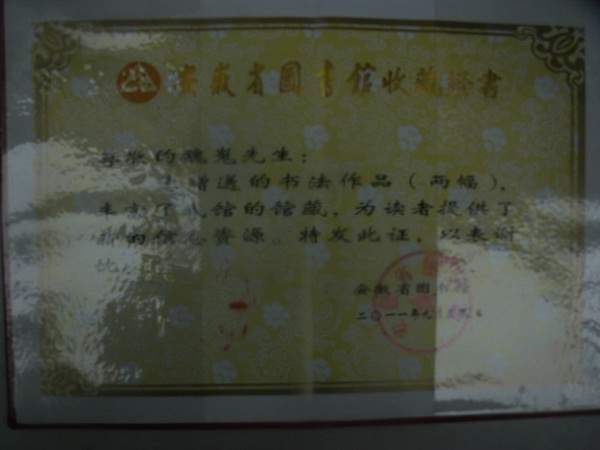 安徽省图书馆收藏证书
尊敬的魏嵬先生：
赠送的书法作品（两幅），
丰富了我馆的馆藏，为读者提供了
新的信息资源。特发此证，以表谢
忱
安徽省图书馆
二〇一一年九月